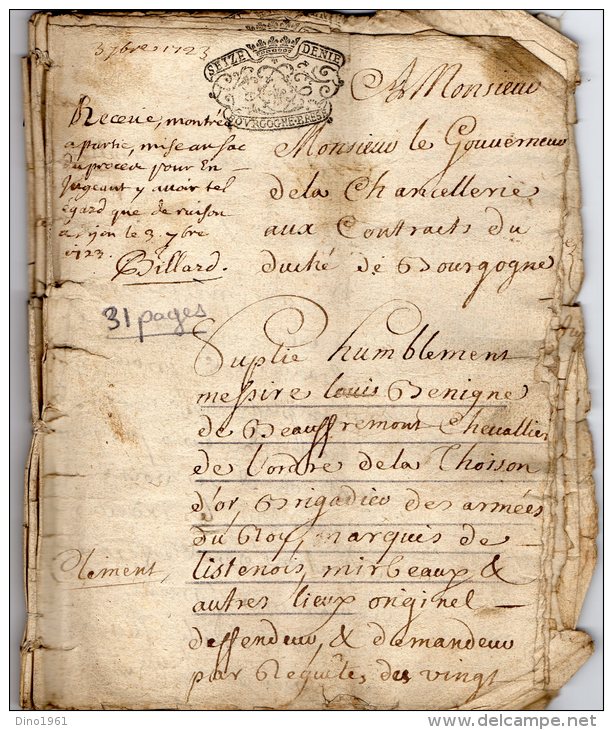 3 7bre 1723
SEIZE DENIE
BOVRGOGNE·BRESS
A Monsieur
Monsieur le Gouverneur
de la Chancellerie
aux Contracts du
duché de Bourgogne
Receüe, montrée
a partie, mise au sac
du procez pour en
Jugeant y avoir tel
Egard que de raison
a dijon le 3 7bre
1723.
Billard.
31 pages
Suplie humblement
messire louis Benigne
de Beauffremont Chevallier
de L'ordre de la Thoison
d'or, Brigadier des armées
du Roy, marquis de
listenois, mirbeaux &
autres lieux originel
deffendeur & demandeur
par Requête des vingt
Clement,
Dino1961
www.delcampe.net